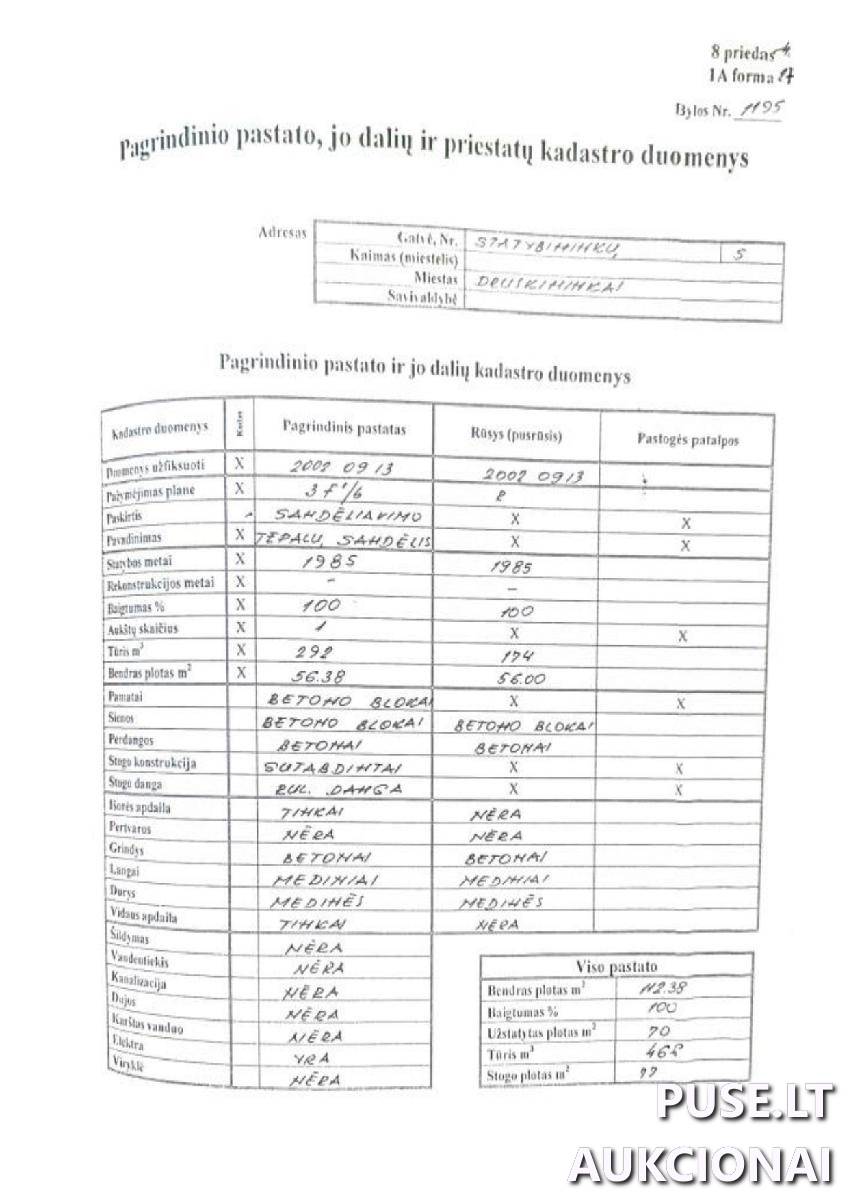 8 priedas
1A forma
Bylos Nr. 1195
Pagrindinio pastato, jo dalių ir priestatų kadastro duomenys
Adresas
Gatvė, Nr. STATYBININKŲ 5
Kaimas (miestelis)
Miestas DRUSKININKAI
Savivaldybė
Pagrindinio pastato ir jo dalių kadastro duomenys
Kadastro duomenys Kodas Pagrindinis pastatas Rūsys (pusrūsis) Pastogės patalpos
Duomenys užfiksuoti X 2002 09 13 2002 09 13
Pažymėjimas plane X 3F1/b R
Paskirtis SANDĖLIAVIMO X X
Pavadinimas X TEPALŲ SANDĖLIS X X
Statybos metai X 1985 1985
Rekonstrukcijos metai X – –
Baigtumas % X 100 100
Aukštų skaičius X 1 X X
Tūris m³ X 292 174
Bendras plotas m² X 56.38 56.00
Pamatai BETONO BLOKAI X X
Sienos BETONO BLOKAI BETONO BLOKAI
Perdangos BETONAI BETONAI
Stogo konstrukcija SUTAPDINTAI X X
Stogo danga RUL. DANGA X X
Išorės apdaila TINKAI NĖRA
Pertvaros NĖRA NĖRA
Grindys BETONAI BETONAI
Langai MEDINIAI MEDINIAI
Durys MEDINĖS MEDINĖS
Vidaus apdaila TINKAI NĖRA
Šildymas NĖRA
Vandentiekis NĖRA
Kanalizacija NĖRA
Dujos NĖRA
Karštas vanduo NĖRA
Elektra YRA
Viryklė NĖRA
Viso pastato
Bendras plotas m² 112.38
Baigtumas % 100
Užstatytas plotas m² 70
Tūris m³
Stogo plotas m²
PUSE.LT
AUKCIONAI